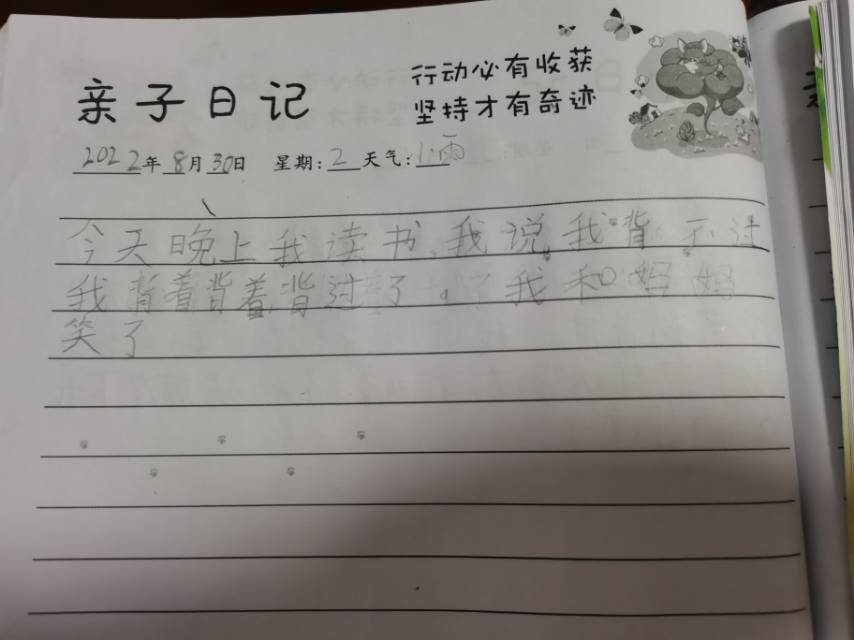 亲子日记
行动必有收获
坚持才有奇迹
2022年8月30日 星期:2 天气:小雨
今天晚上我读书,我说,我背不过
我背着背着背过了。我和妈妈
笑了